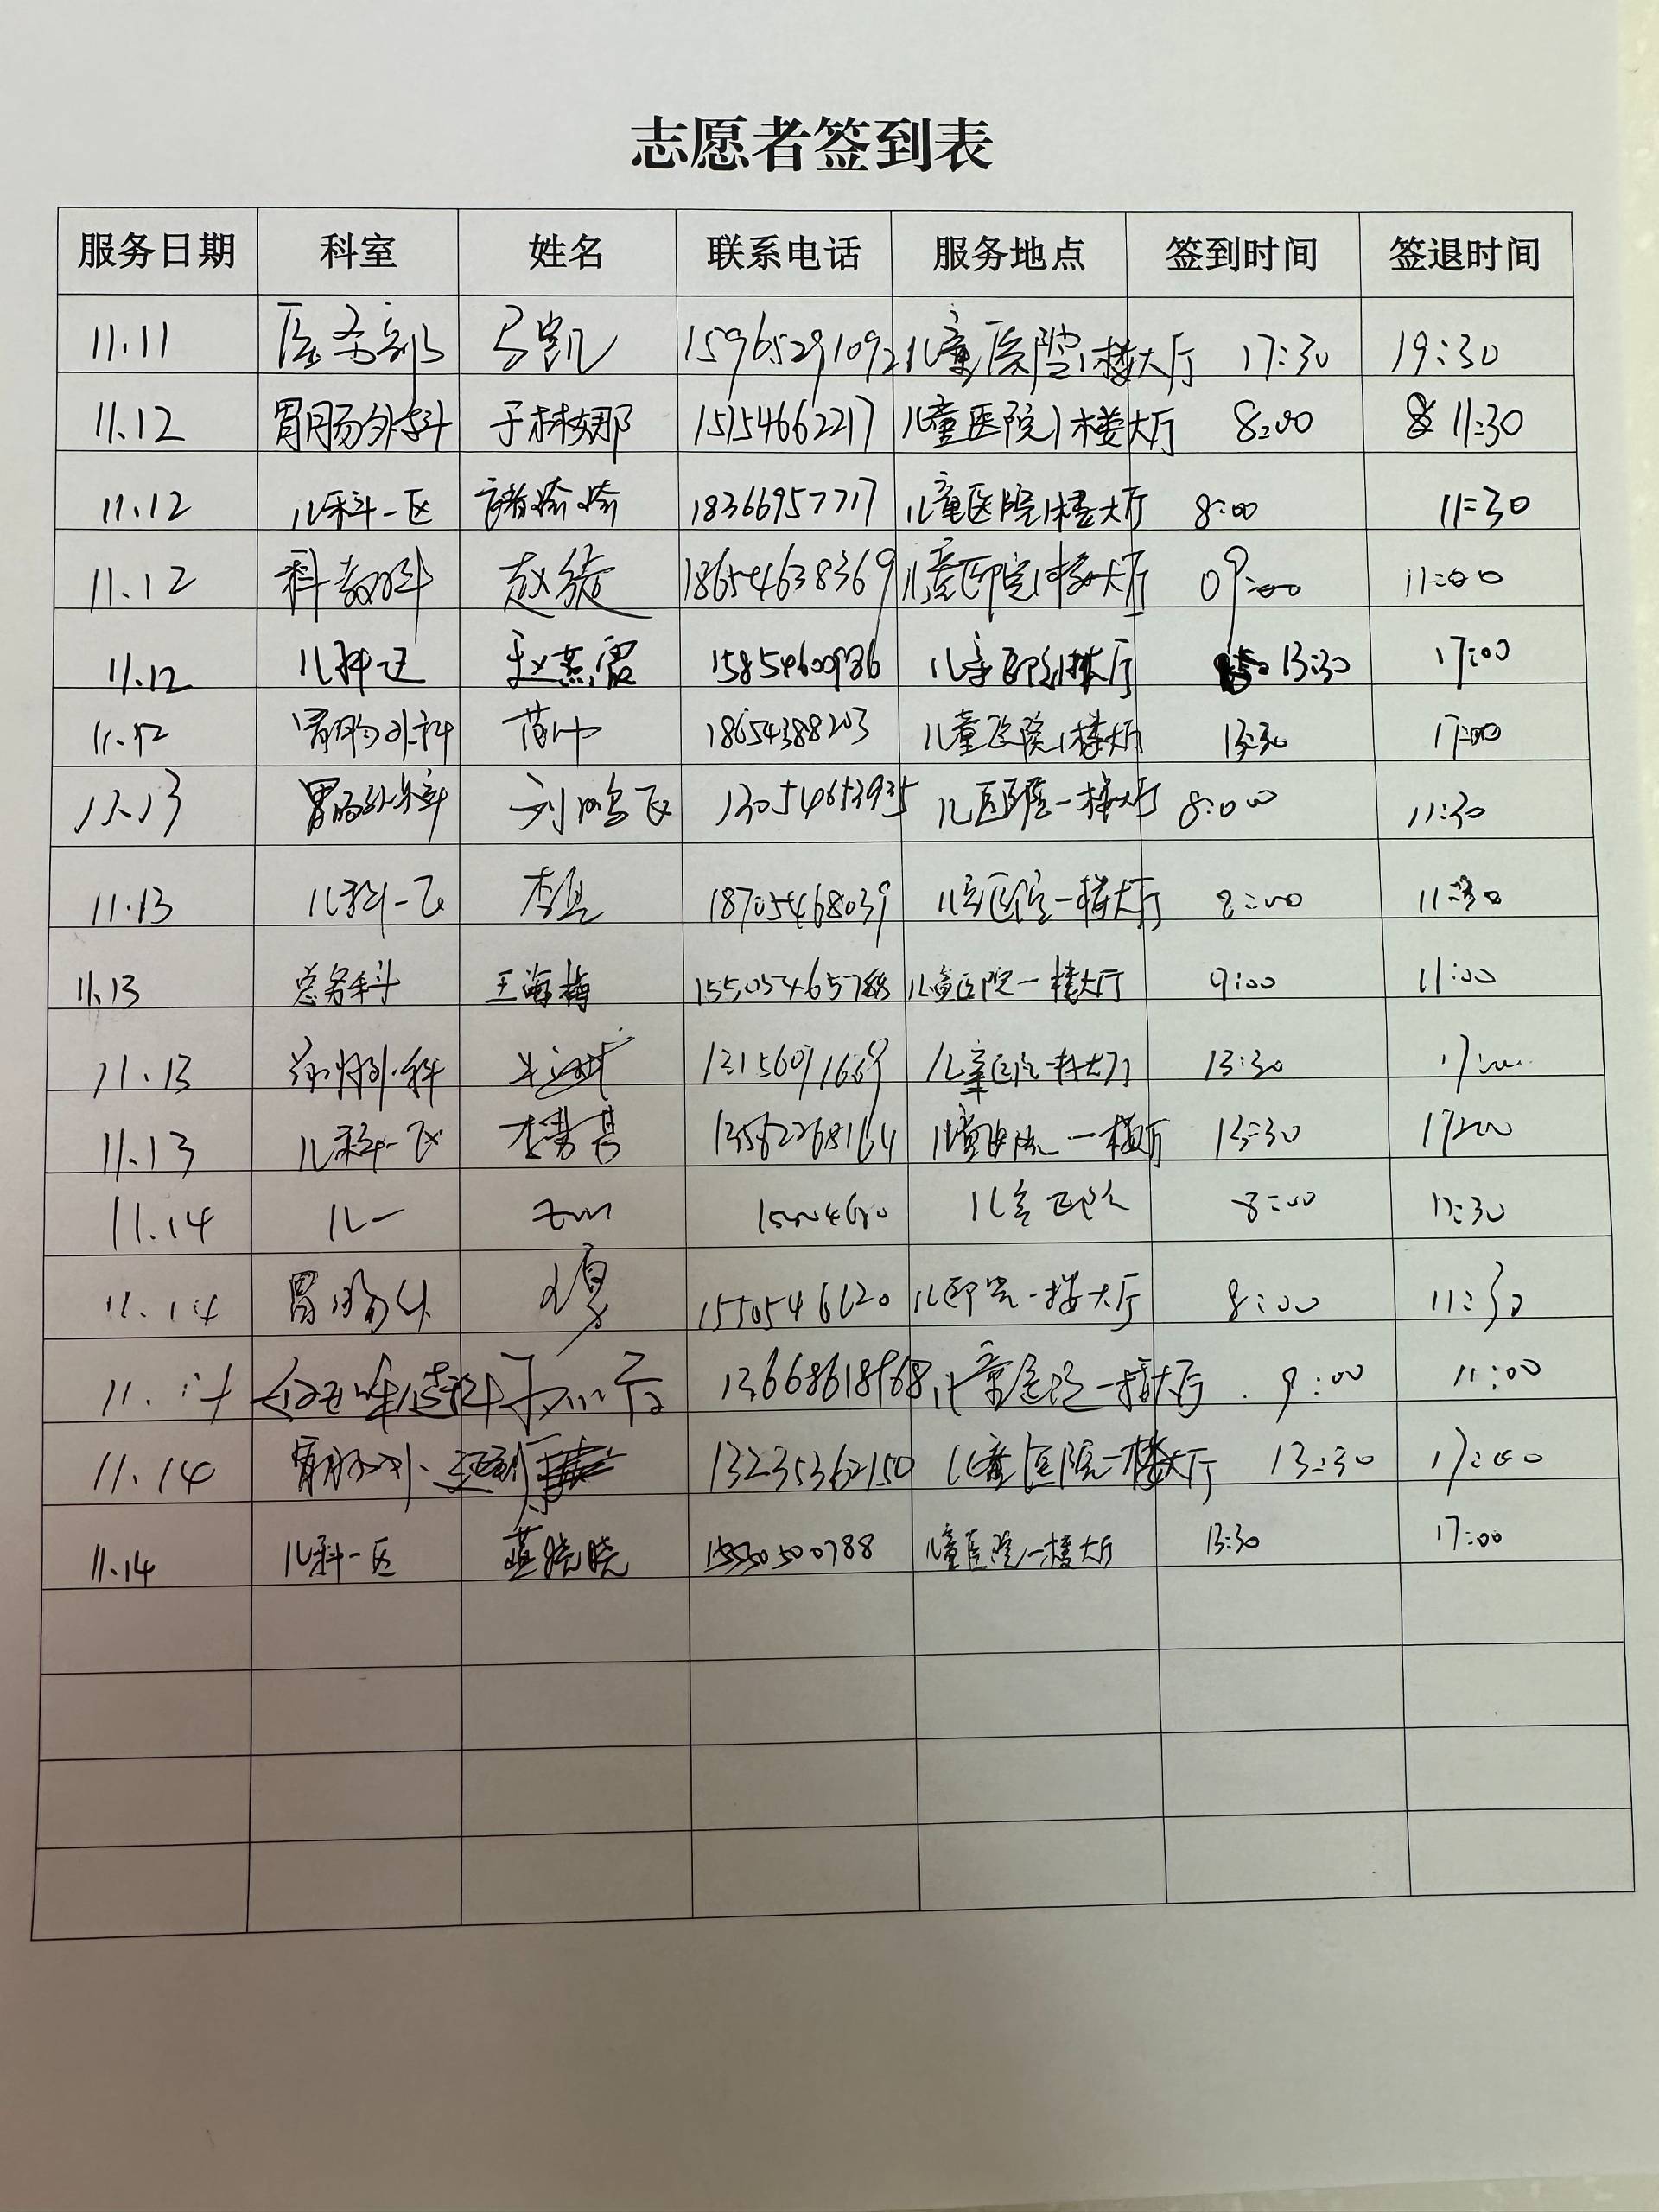 志愿者签到表
服务日期 科室 姓名 联系电话 服务地点 签到时间 签退时间
11.11 医务部 马凯 15965291092 儿童医院1楼大厅 17:30 19:30
11.12 胃肠外科 于林娜 15154662217 儿童医院1楼大厅 8:00 11:30
11.12 儿科一区 18366957717 儿童医院1楼大厅 8:00 11:30
11.12 科教科 18654638369 儿童医院1楼大厅 09:00 11:00
11.12 赵燕霞 13:30 17:00
11.12 胃肠外科 18654388203 儿童医院1楼大厅 13:30 17:00
11.13 胃肠外科 刘鸣飞 一楼大厅 8:00 11:30
11.13 儿科一区 18705468039 儿童医院一楼大厅 8:00 11:30
11.13 总务科 王海梅 儿童医院一楼大厅 9:00 11:00
11.13 儿童医院一楼大厅 13:30 17:00
11.13 儿科一区 13562268164 一楼大厅 13:30 17:00
11.14 儿一 儿童医院 8:00 11:30
11.14 胃肠外 一楼大厅 8:00 11:30
11.14 13668618968 儿童医院一楼大厅 9:00 11:00
11.14 胃肠外 13235362150 儿童医院一楼大厅 13:30 17:00
11.14 儿科一区 蓝晓晓 15550500788 儿童医院一楼大厅 13:30 17:00